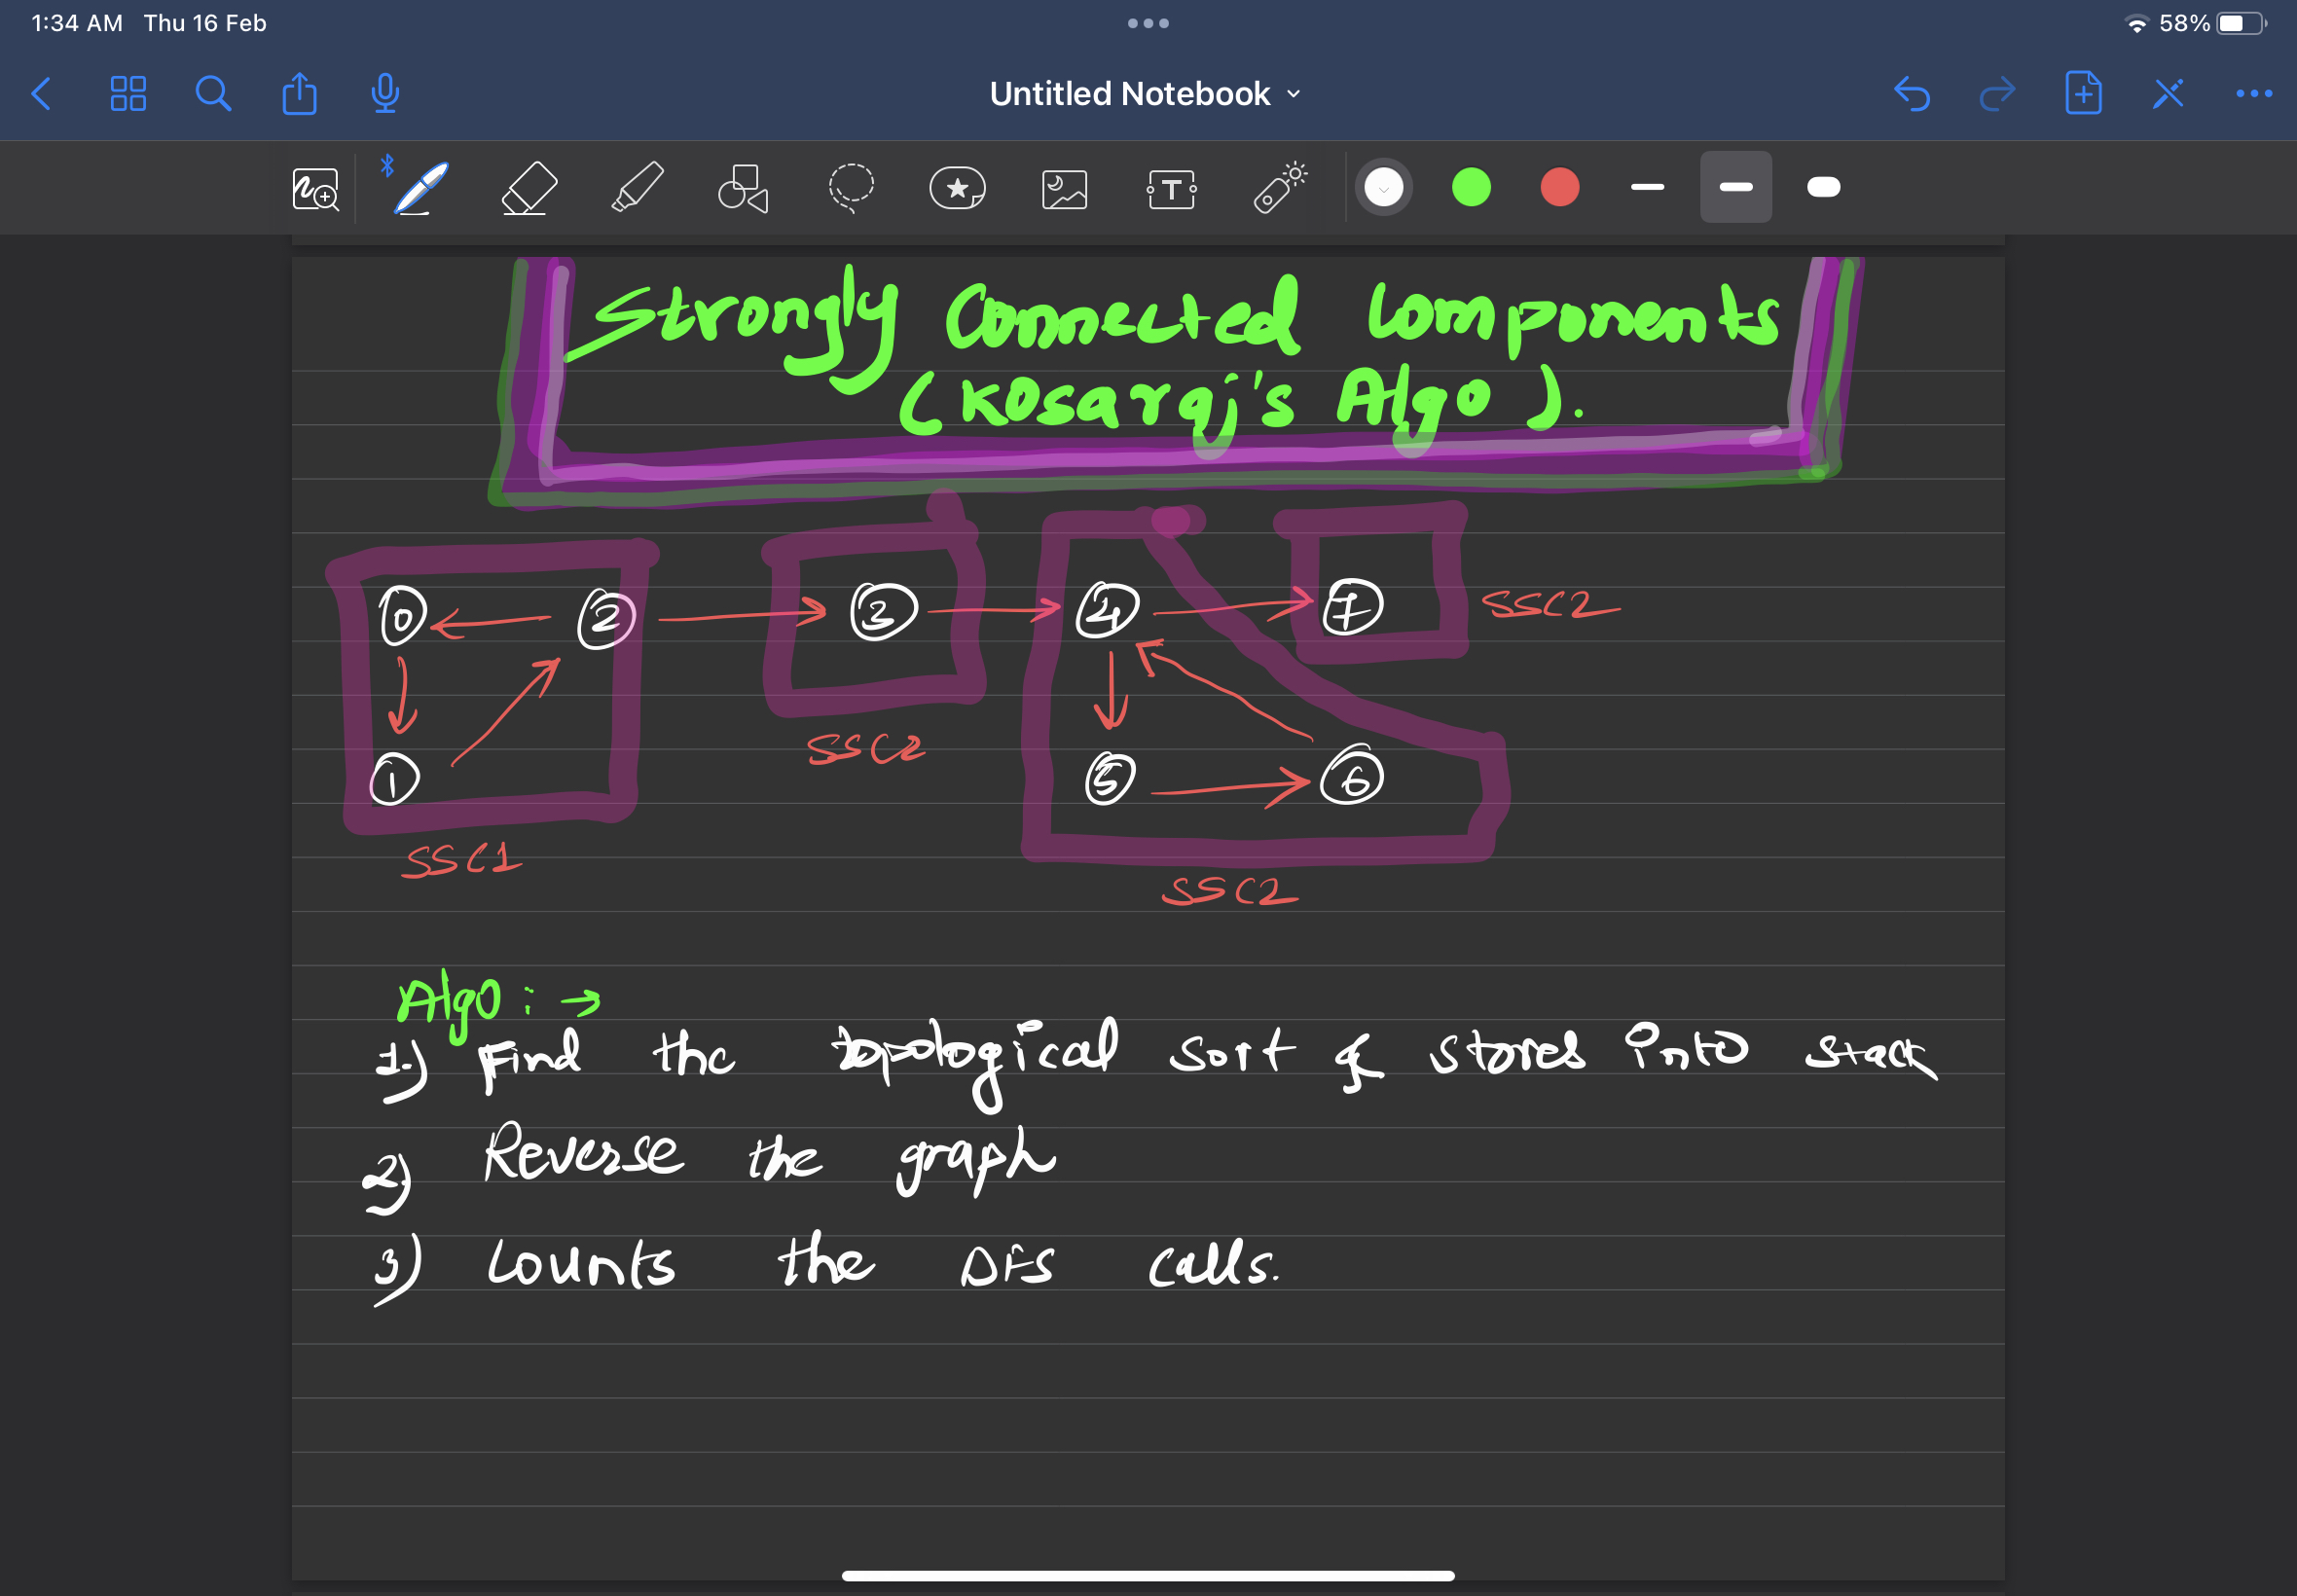 1:34 AM Thu 16 Feb
58%
Untitled Notebook
T
Strongly Connected Components
(Kosaraj's Algo).
0
2
3
4
7
SSC2
SSC2
1
5
6
SSC1
SSC2
Algo : →
1) Find the topological sort & stores into stack
2) Reverse the graph
3) Counts the DFS calls.